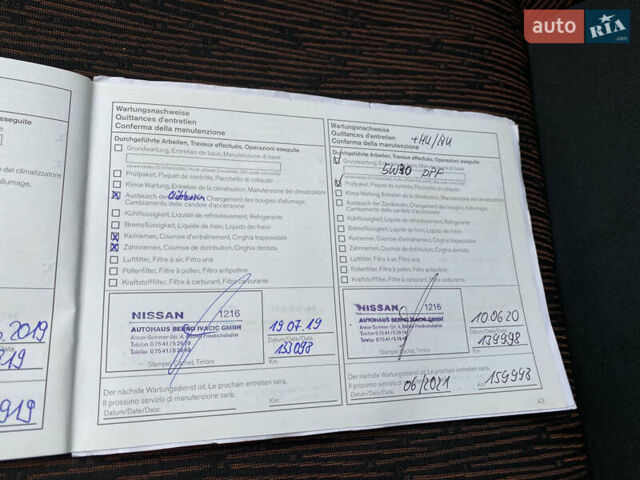 auto RIA
.com
eseguite
del climatizzatore
lumage,
2019
/Data
919
Wartungsnachweise
Quittances d'entretien
Conferma della manutenzione
Durchgeführte Arbeiten, Travaux effectués, Operazioni eseguite
Grundwartung, Entretien de base, Manutenzione di base
Prüfpaket, Paquet de contrôle, Pacchetto di collaudo
Klima-Wartung, Entretien de la climatisation, Manutenzione del climatizzatore
Austausch der Changement des bougies d'allumage,
Cambiamento delle candele d'accensione
Kühlflüssigkeit, Liquide de refroidissement, Refrigerante
Bremsflüssigkeit, Liquide de frein, Liquido dei freni
Keilriemen, Courroie d'entraînement, Cinghia trapezoidale
Zahnriemen, Courroie de distribution, Cinghia dentata
Luftfilter, Filtre à air, Filtro aria
Pollenfilter, Filtre à pollen, Filtro antipolline
Kraftstofffilter, Filtre à carburant, Filtro carburante
NISSAN 1216
AUTOHAUS BERND IVACIC GMBH
Stempel, Cachet, Timbro
19.07.19
Datum/Date/Data
153098
Km
Der nächste Wartungsdienst ist, Le prochain entretien sera,
Il prossimo servizio di manutenzione sarà,
Datum/Date/Data:
Km:
Wartungsnachweise
Quittances d'entretien
Conferma della manutenzione
+HU/AU
Durchgeführte Arbeiten, Travaux effectués, Operazioni eseguite
Grundwartung, Entretien de base, Manutenzione di base
5W30 DPF
Prüfpaket, Paquet de contrôle, Pacchetto di collaudo
Klima-Wartung, Entretien de la climatisation, Manutenzione del climatizzatore
Austausch der Zündkerzen, Changement des bougies d'allumage,
Cambiamento delle candele d'accensione
Kühlflüssigkeit, Liquide de refroidissement, Refrigerante
Bremsflüssigkeit, Liquide de frein, Liquido dei freni
Keilriemen, Courroie d'entraînement, Cinghia trapezoidale
Zahnriemen, Courroie de distribution, Cinghia dentata
Luftfilter, Filtre à air, Filtro aria
Pollenfilter, Filtre à pollen, Filtro antipolline
Kraftstofffilter, Filtre à carburant, Filtro carburante
NISSAN 1216
AUTOHAUS BERND IVACIC GMBH
Stempel, Cachet, Timbro
10.06.20
Datum/Date/Data
139998
Km
Der nächste Wartungsdienst ist, Le prochain entretien sera,
Il prossimo servizio di manutenzione sarà,
Datum/Date/Data: 06/2021
Km: 159998
43